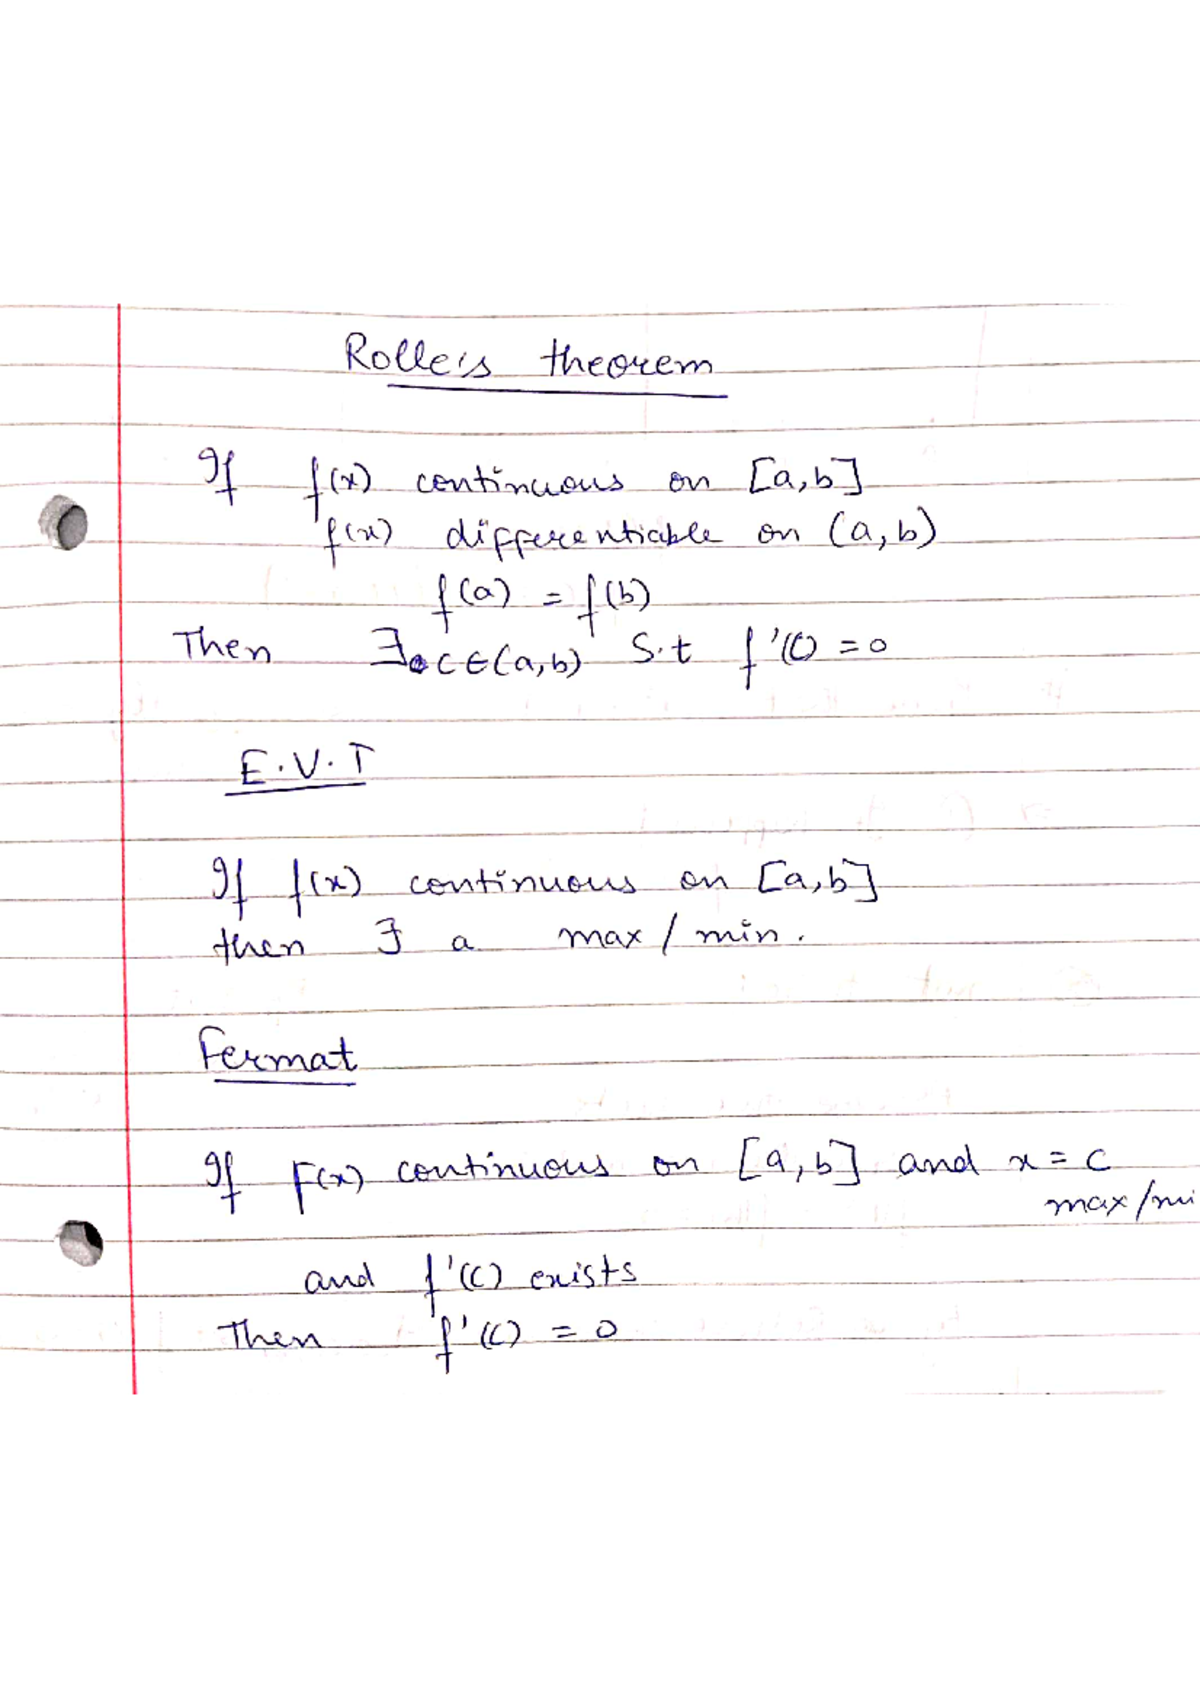 Rolle's theorem
If f(x) continuous on [a,b]
f(x) differentiable on (a,b)
f(a) = f(b)
Then ∃ c∈(a,b) S.t f'(c) = 0
E.V.T
If f(x) continuous on [a,b]
then ∃ a max / min.
Fermat
If F(x) continuous on [a,b] and x = c
max/mi
and f'(c) exists
Then f'(c) = 0